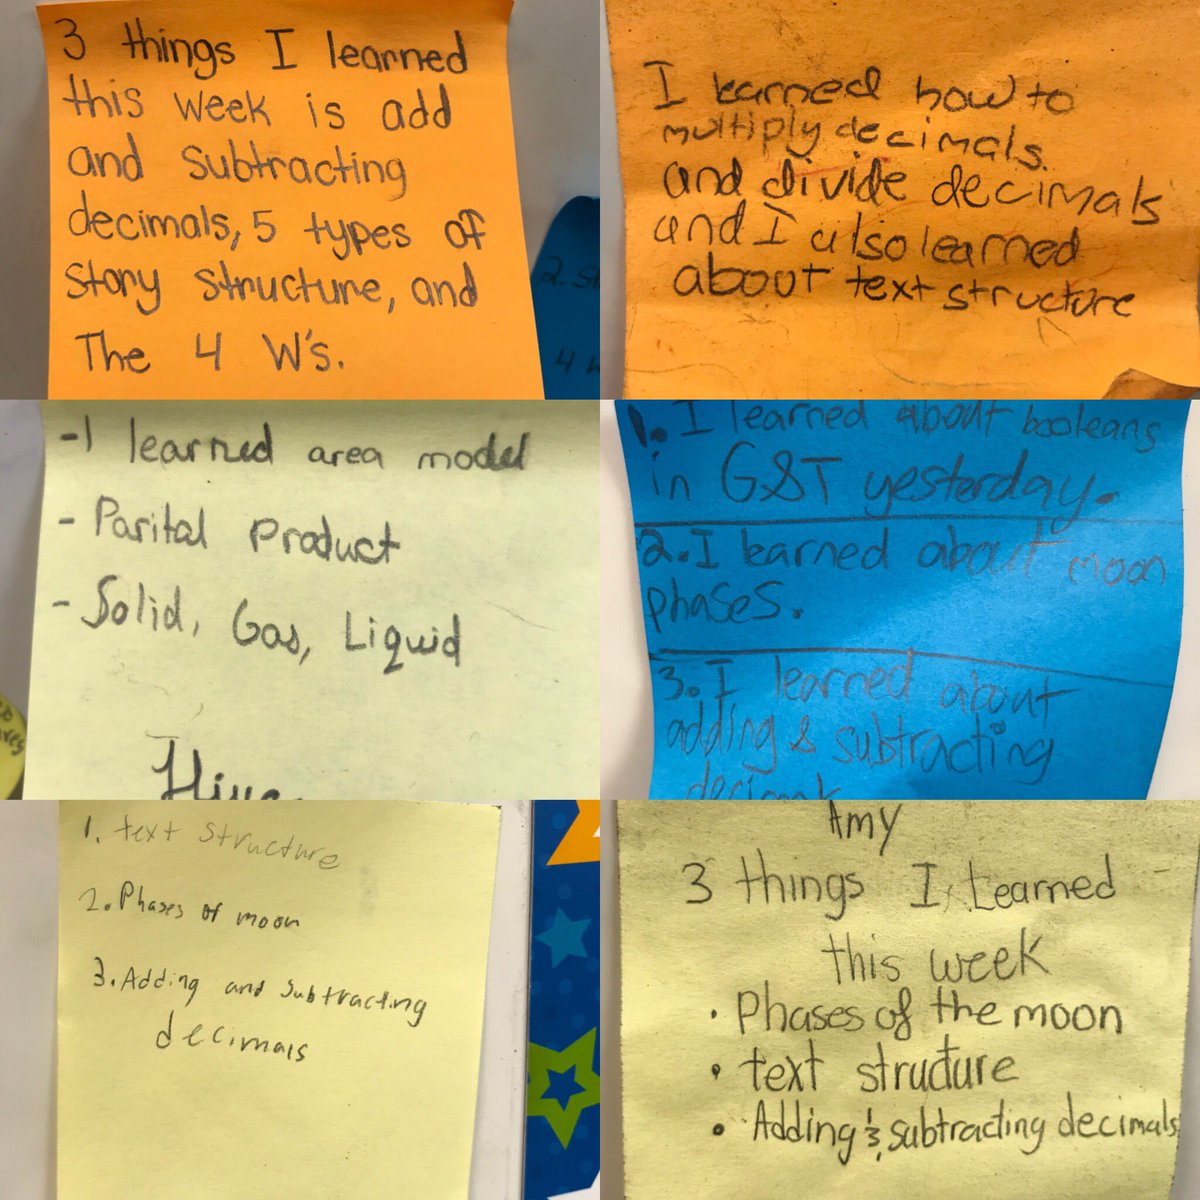 3 things I learned
this week is add
and subtracting
decimals, 5 types of
story structure, and
The 4 W's.
2. St
4 W
I learned how to
multiply decimals.
and divide decimals
and I also learned
about text structure
-I learned area model
- Parital Product
- Solid, Gas, Liquid
1. I learned about booleans
in G&T yesterday.
2. I learned about moon
phases.
3. I learned about
adding & subtracting
1. text structure
2. Phases of moon
3. Adding and subtracting
decimals
Amy
3 things I Learned
this week
• Phases of the moon
• text structure
• Adding & subtracting decimals